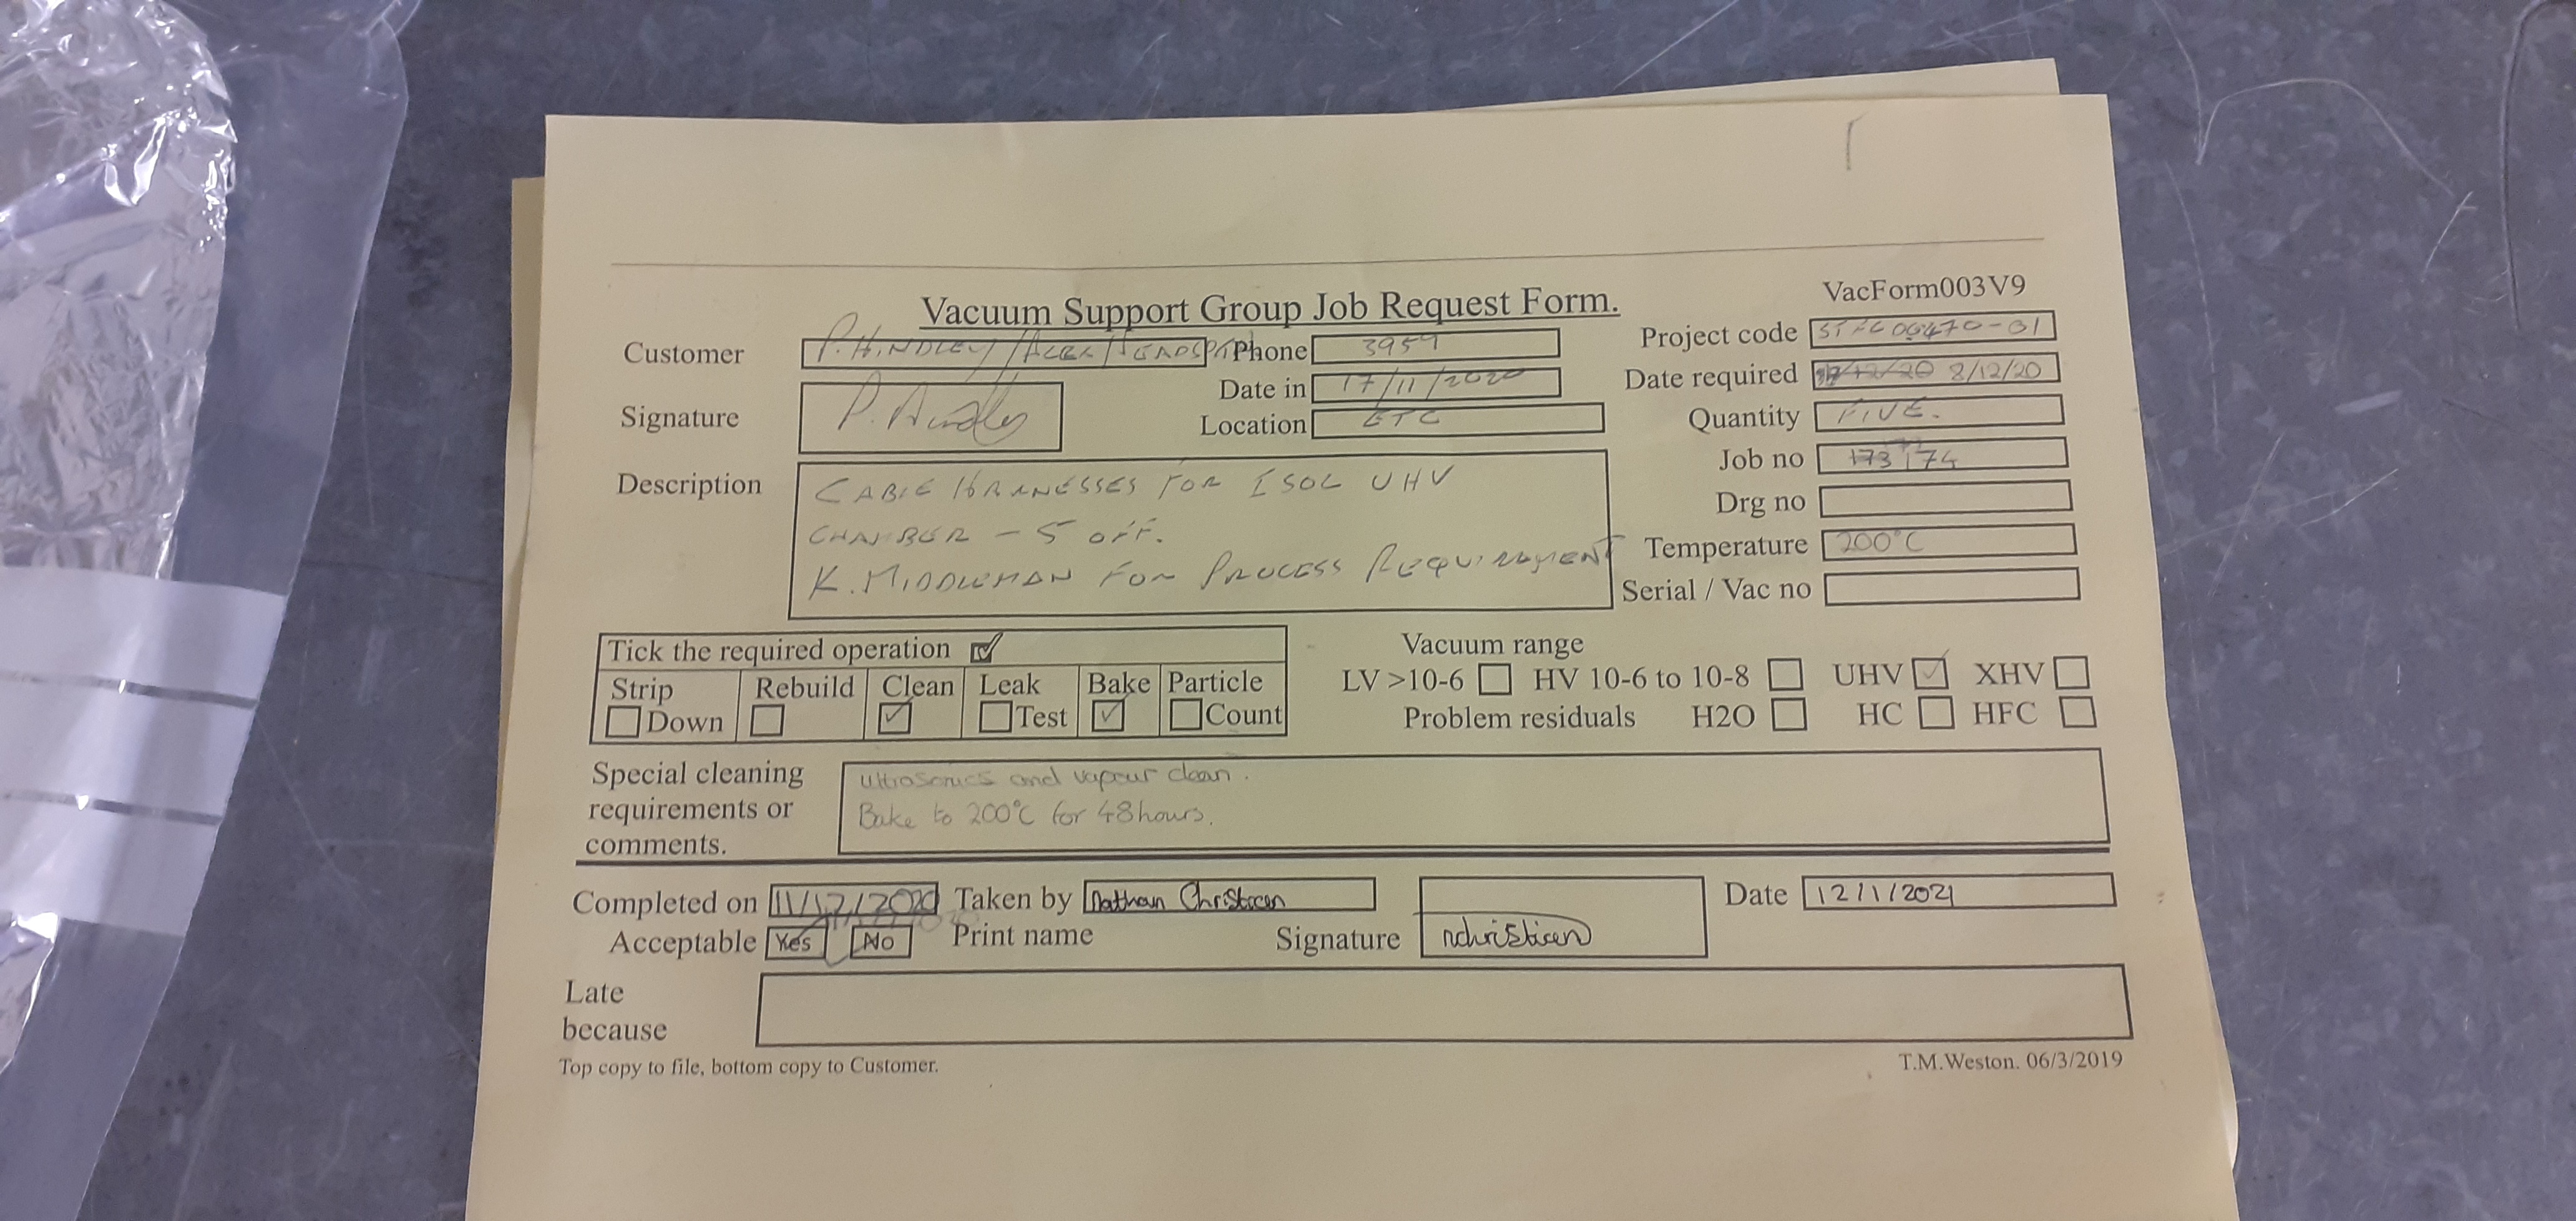 VacForm003V9
Vacuum Support Group Job Request Form.
Customer P. HINDLEY / ALEX Phone 3959 Project code
Signature P. Hindley Date in 17/11/2020 Date required 8/12/20
Location ETC Quantity FIVE.
Description CABLE HARNESSES FOR ISOL UHV Job no 174
CHAMBER - 5 OFF. Drg no
K. MIDDLEMAN FOR PROCESS REQUIREMENT Temperature 200°C
Serial / Vac no
Tick the required operation
Strip Down Rebuild Clean Leak Test Bake Particle Count
Vacuum range
LV >10-6 HV 10-6 to 10-8 UHV XHV
Problem residuals H2O HC HFC
Special cleaning requirements or comments.
Ultrasonics and vapour clean.
Bake to 200°C for 48hours.
Completed on 11/12/2020 Taken by Nathan Date 12/1/2021
Acceptable Yes No Print name Signature
Late because
Top copy to file, bottom copy to Customer. T.M.Weston. 06/3/2019